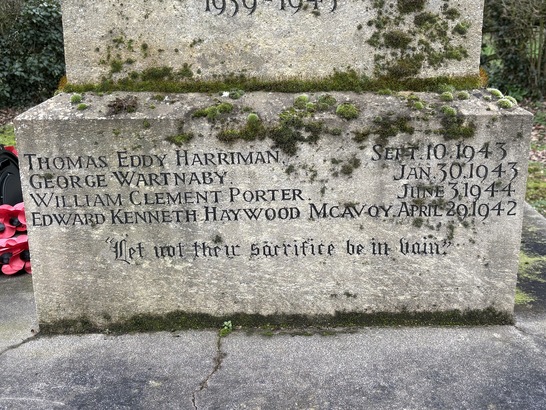 1939-1945
THOMAS EDDY HARRIMAN. SEPT. 10. 1943
GEORGE WARTNABY JAN. 30. 1943
WILLIAM CLEMENT PORTER. JUNE 3. 1944
EDWARD KENNETH HAYWOOD MCAVOY. APRIL 29. 1942
"Let not their sacrifice be in vain."